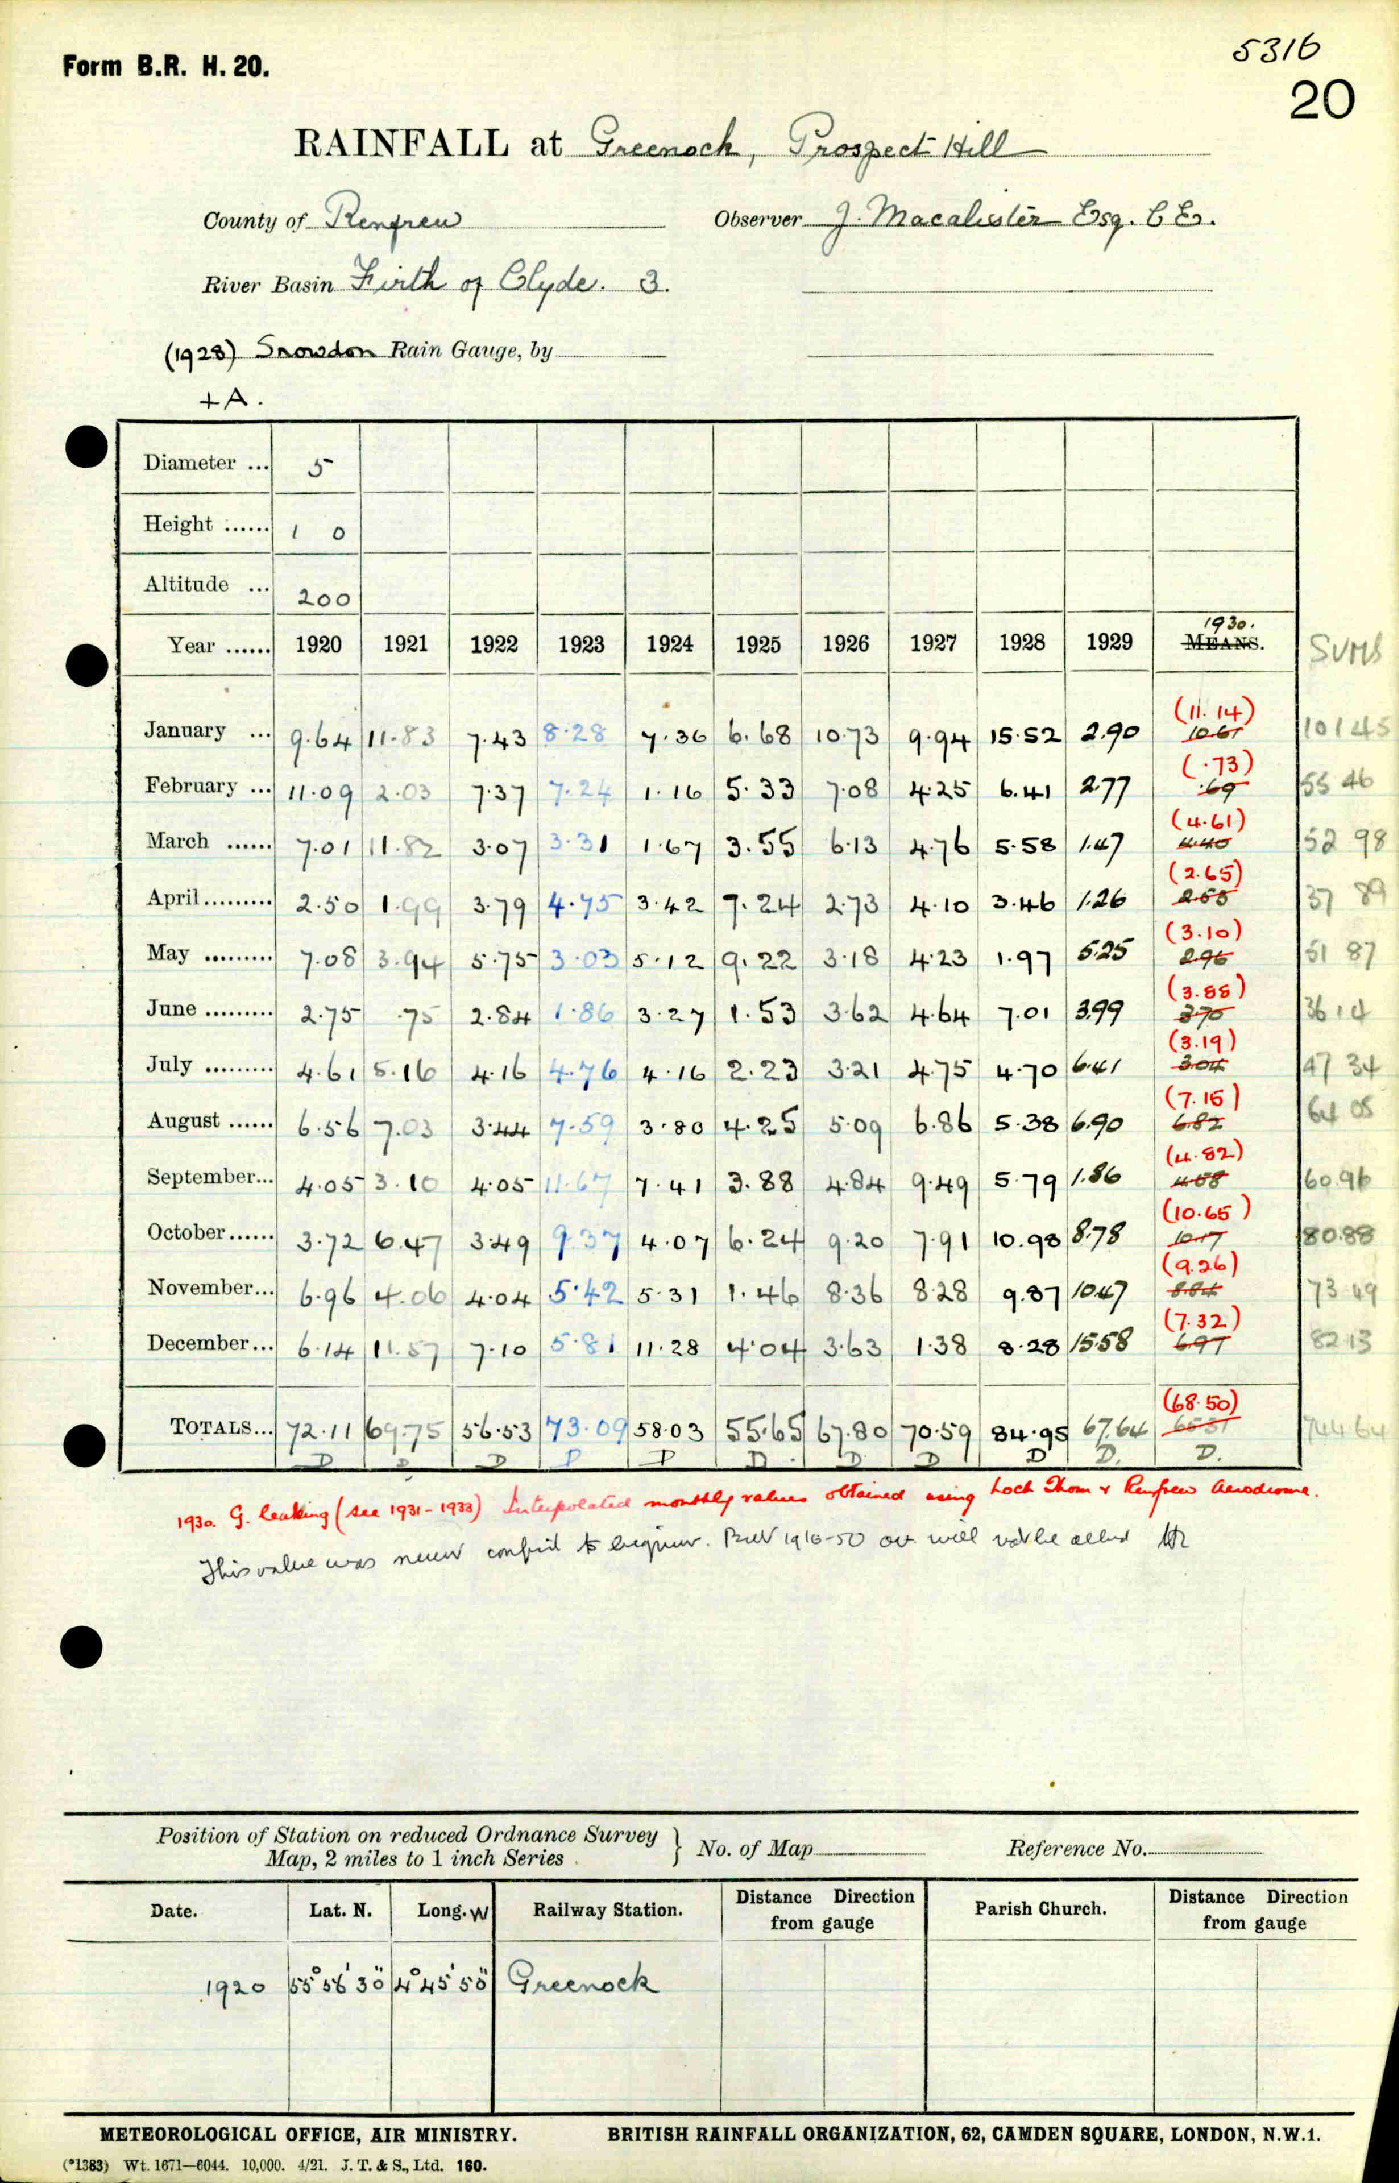 Form B.R. H. 20.
5316
20
RAINFALL at Greenock, Prospect Hill
County of Renfrew Observer J. Macalister Esq. C E.
River Basin Firth of Clyde. 3.
(1928) Snowdon Rain Gauge, by
+ A.
Diameter ... 5
Height ...... 1 0
Altitude ... 200
1930.
Year ...... 1920 1921 1922 1923 1924 1925 1926 1927 1928 1929 MEANS. SUMS
(11.14)
January ... 9.64 11.83 7.43 8.28 7.36 6.68 10.73 9.94 15.52 2.90 10.61 101 45
(.73)
February ... 11.09 2.03 7.37 7.24 1.16 5.33 7.08 4.25 6.41 2.77 .69 55 46
(4.61)
March ...... 7.01 11.82 3.07 3.31 1.67 3.55 6.13 4.76 5.58 1.47 4.40 52 98
(2.65)
April ......... 2.50 1.99 3.79 4.75 3.42 7.24 2.73 4.10 3.46 1.26 2.53 37 89
(3.10)
May ......... 7.08 3.94 5.75 3.03 5.12 9.22 3.18 4.23 1.97 5.25 2.96 51 87
(3.88)
June ......... 2.75 .75 2.84 1.86 3.27 1.53 3.62 4.64 7.01 3.99 3.70 36 14
(3.19)
July ......... 4.61 5.16 4.16 4.76 4.16 2.23 3.21 4.75 4.70 6.41 3.04 47 34
(7.15)
August ...... 6.56 7.03 3.44 7.59 3.80 4.25 5.09 6.86 5.38 6.90 6.82 64 05
(4.82)
September... 4.05 3.10 4.05 11.67 7.41 3.88 4.84 9.49 5.79 1.86 4.58 60.96
(10.65)
October...... 3.72 6.47 3.49 9.37 4.07 6.24 9.20 7.91 10.98 8.78 10.17 80.88
(9.26)
November... 6.96 4.06 4.04 5.42 5.31 1.46 8.36 8.28 9.87 10.47 8.84 73 49
(7.32)
December... 6.14 11.57 7.10 5.81 11.28 4.04 3.63 1.38 8.28 15.58 6.97 82 13
(68.50)
TOTALS... 72.11 69.75 56.53 73.09 58.03 55.65 67.80 70.59 84.95 67.64 65.31 744 64
D D D D D D D D D D. D.
1930. G. leaking (see 1931-1933) Interpolated monthly values obtained using Loch Thom & Renfrew Aerodrome.
This value was never 1916-50 will
Position of Station on reduced Ordnance Survey
Map, 2 miles to 1 inch Series } No. of Map Reference No.
Date. Lat. N. Long. W Railway Station. Distance Direction from gauge Parish Church. Distance Direction from gauge
1920 55° 56' 30" 4° 45' 50" Greenock
METEOROLOGICAL OFFICE, AIR MINISTRY. BRITISH RAINFALL ORGANIZATION, 62, CAMDEN SQUARE, LONDON, N.W.1.
(*1383) Wt. 1671—6044. 10,000. 4/21. J. T. & S., Ltd. 160.